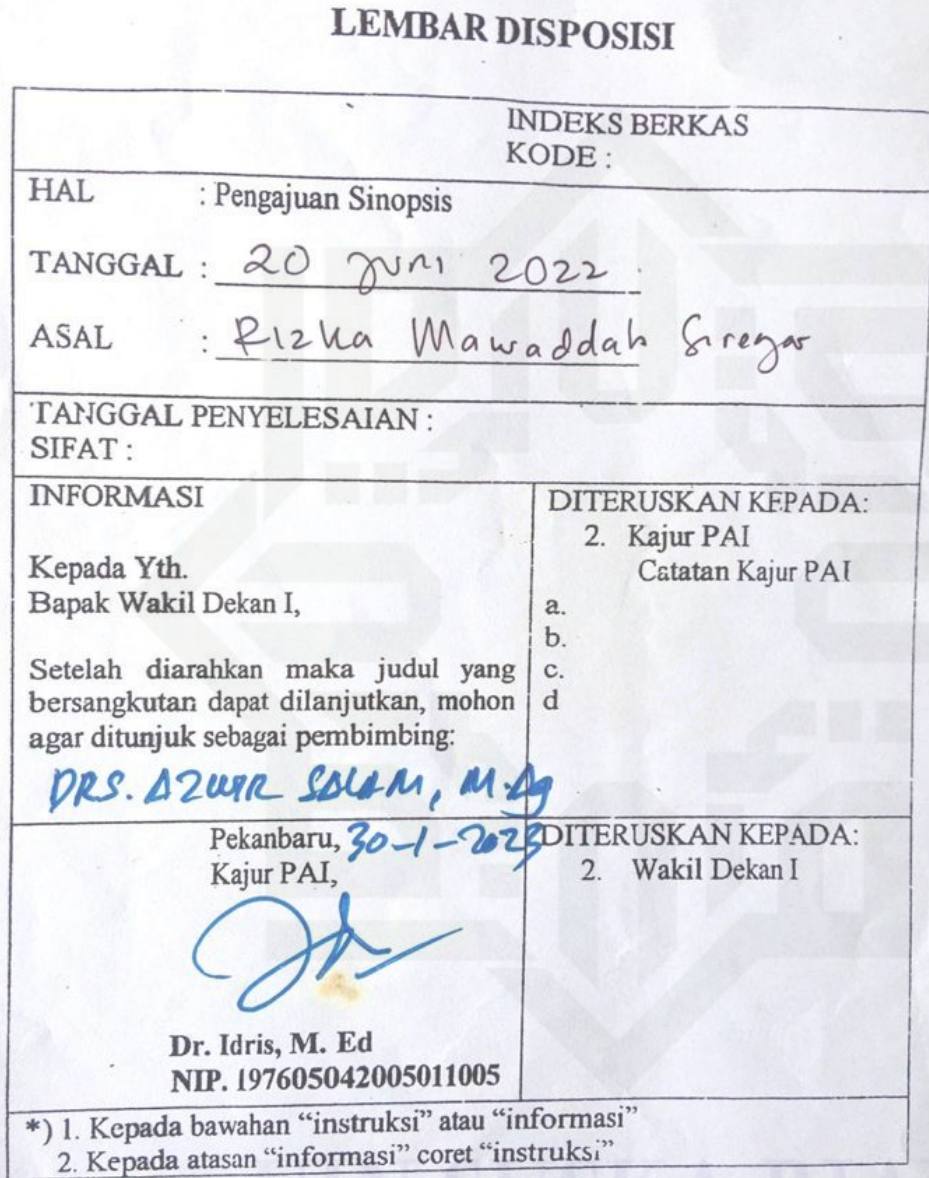 LEMBAR DISPOSISI
INDEKS BERKAS
KODE :
HAL : Pengajuan Sinopsis
TANGGAL : 20 Juni 2022
ASAL : Rizka Mawaddah Siregar
TANGGAL PENYELESAIAN :
SIFAT :
INFORMASI
Kepada Yth.
Bapak Wakil Dekan I,
Setelah diarahkan maka judul yang
bersangkutan dapat dilanjutkan, mohon
agar ditunjuk sebagai pembimbing:
DRS. AZWIR SALAM, M.Ag
DITERUSKAN KEPADA:
2. Kajur PAI
Catatan Kajur PAI
a.
b.
c.
d
Pekanbaru, 30-1-2023
Kajur PAI,
Dr. Idris, M. Ed
NIP. 197605042005011005
DITERUSKAN KEPADA:
2. Wakil Dekan I
*) 1. Kepada bawahan “instruksi” atau “informasi”
2. Kepada atasan “informasi” coret “instruksi”